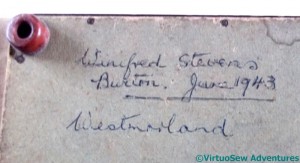 Winifred Stevens
Burton. June 1943
Westmorland
©VirtuoSew Adventures